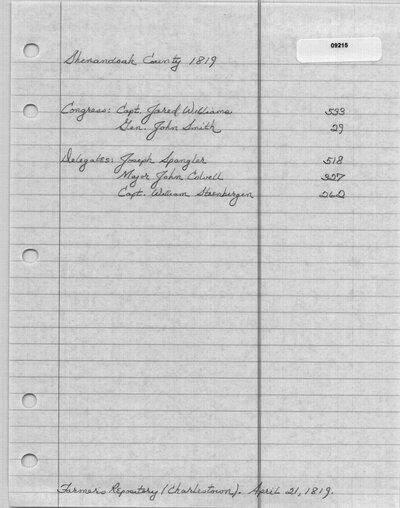 09215
Shenandoah County 1819
Congress: Capt. Jared Williams 533
Gen. John Smith 29
Delegates: Joseph Spangler 518
Major John Colvell
Capt. William Steenbergen 262
Farmers Repository (Charlestown). April 21, 1819.